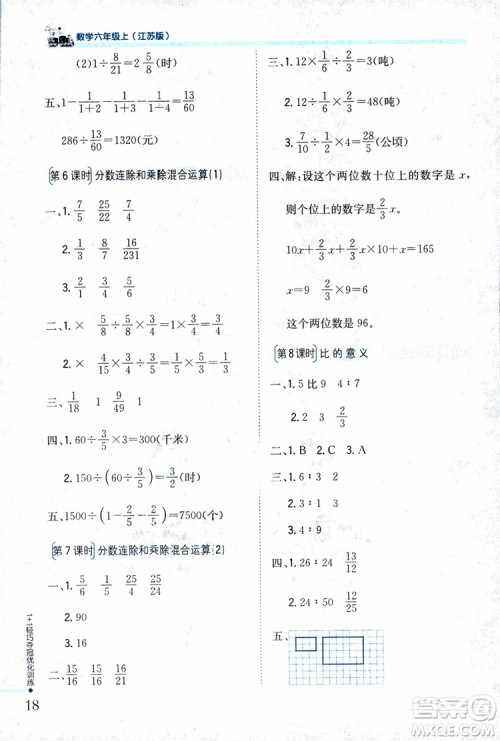 数学六年级上(江苏版)
(2)1÷8/21=2 5/8(时)
五、1-1/(1+2)-1/(1+3)-1/(1+4)=13/60
286÷13/60=1320(元)
第6课时 分数连除和乘除混合运算(1)
一、1. 7/5 25/22 7/6
2. 1/3 8/7 16/231
3. 1/3 3/4 5/6
二、1. × 5/8÷5/8×3/4=3/4×3/4=
2. × 4/15÷3/5×3/5=4/9×3/5=
三、1/18 1 9/49 1
四、1. 6÷3/5×3=30(千米)
2. 150÷(60÷2/3)=5/3(时)
五、1500÷(1-2/5-2/5)=7500(个)
第7课时 分数连除和乘除混合运算(2)
一、1. 5/7 31/25 4/5
2. 90
3. 16
二、15/16 15/16
三、1. 12×1/2÷2=3(吨)
2. 12×1/2÷1/8=48(吨)
3. 1/2÷3/4×4=28/5(公顷)
四、解:设这个两位数十位上的数字是x,
则个位上的数字是2/3x.
10x+2/3x+2/3x×10+x=165
x=9 2/3x=6
这个两位数是96。
第8课时 比的意义
一、1. 5比9 4∶7
2. 2 3 2/3
二、1. B 2. C 3. A
三、1. 6∶3 2
2. 9∶18 1/2
四、1. 26∶24 13/12
2. 24∶50 12/25
五、
1+1轻巧夺冠优化训练
18
答案圈
MXQE.COM